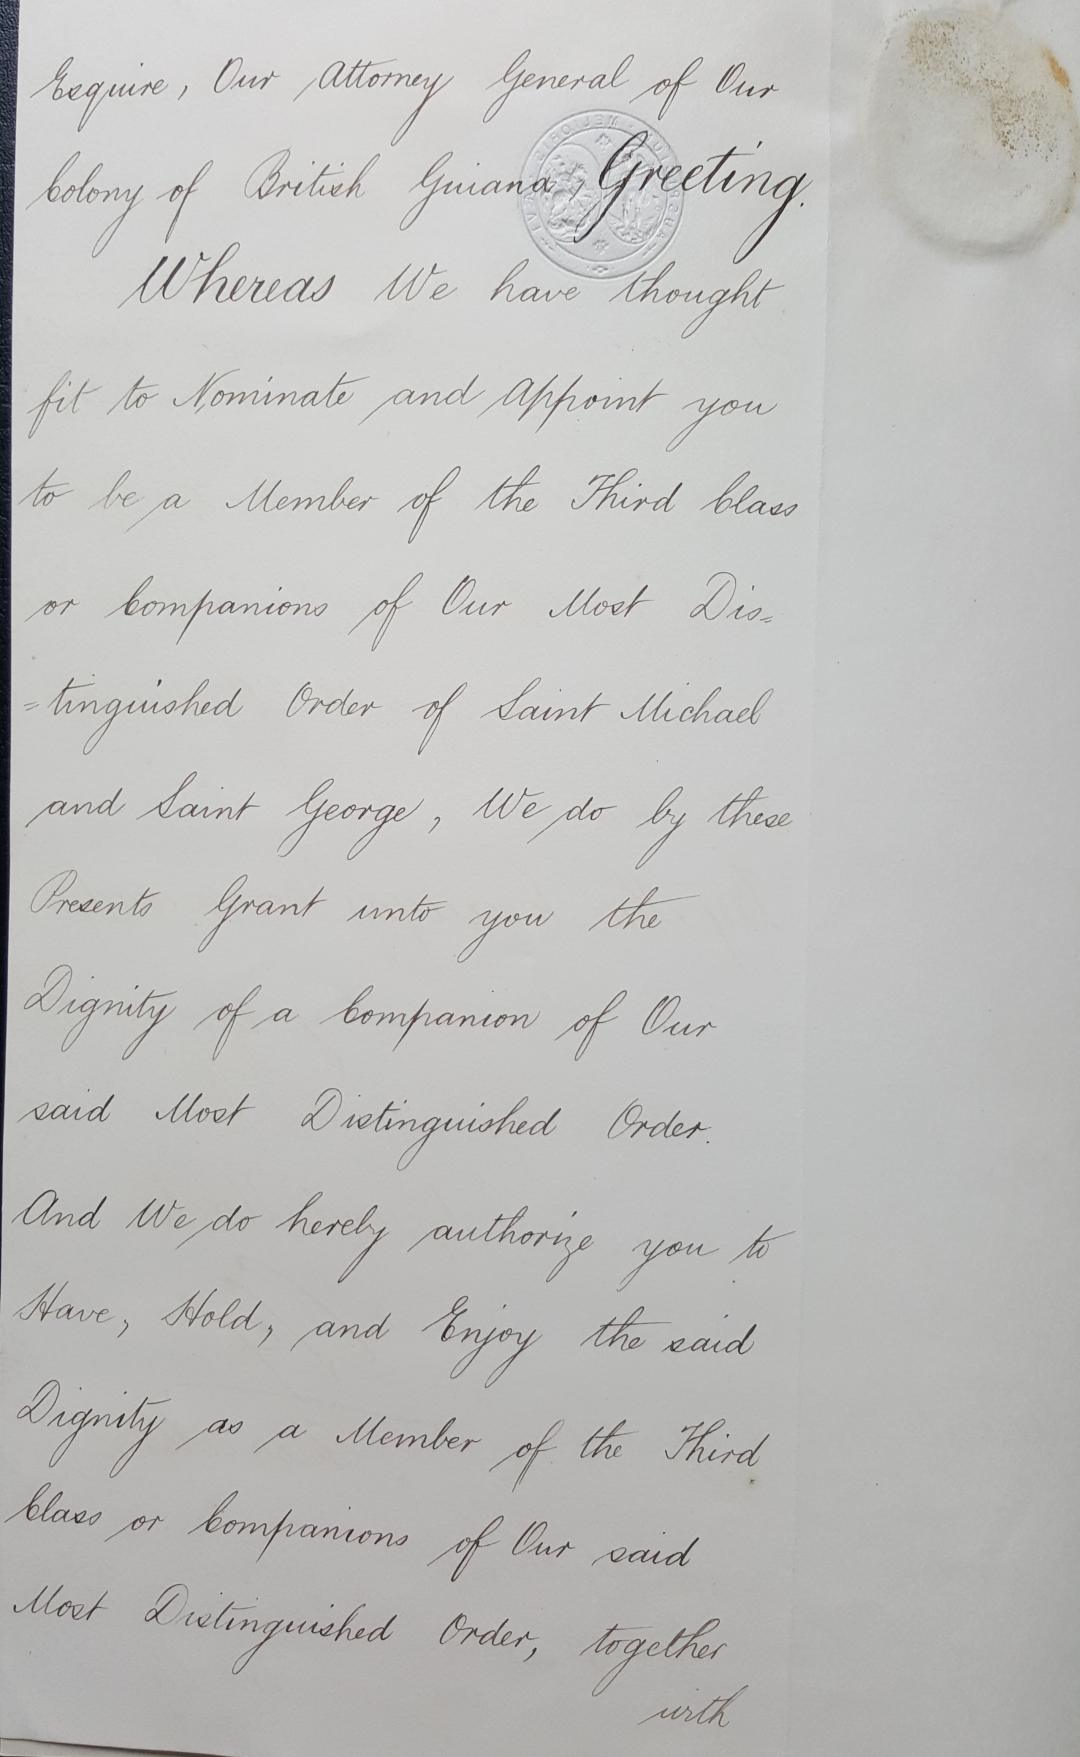 Esquire, Our Attorney General of Our
Colony of British Guiana, Greeting.
Whereas We have thought
fit to Nominate and Appoint you
to be a Member of the Third Class
or Companions of Our Most Dis=
=tinguished Order of Saint Michael
and Saint George, We do by these
Presents Grant unto you the
Dignity of a Companion of Our
said Most Distinguished Order.
And We do hereby authorize you to
Have, Hold, and Enjoy the said
Dignity as a Member of the Third
Class or Companions of Our said
Most Distinguished Order, together
with